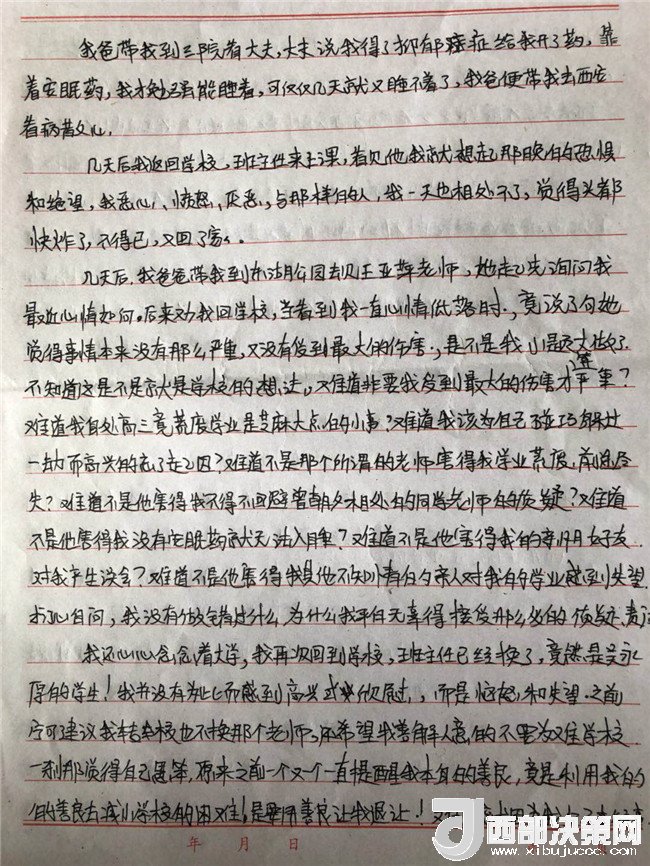 我爸带我到三院看大夫,大夫说我得了抑郁症给我开了药,靠
着安眠药,我才勉强能睡着,可仅仅几天就又睡不着了,我爸便带我去西安
看病散心.
几天后我返回学校,班主任来上课,看见他我就想起那晚的恐惧
和绝望,我恶心、愤怒、厌恶,与那样的人,我一天也相处不了,觉得头都
快炸了,不得已,又回了家。
几天后,我爸爸带我到东湖公园去见王亚萍老师,她起先询问我
最近心情如何。后来劝我回学校,当看到我一直心情低落时,竟说了句她
觉得事情本来没有那么严重,又没有受到最大的伤害,是不是我小题大做了
不知道这是不是就是学校的想法,难道非要我受到最大的伤害才算严重?
难道我身处高三竟荒废学业是芝麻大点的小事?难道我该为自己碰巧躲过
一劫而高兴的忘了起因?难道不是那个所谓的老师害得我学业荒废,前途尽
失?难道不是他害得我不得不回避曾朝夕相处的同学老师的质疑?难道
不是他害得我没有安眠药就无法入睡?难道不是他害得我的亲朋好友
对我产生误会?难道不是他害得我其他不知情的亲人对我的学业感到失望
扪心自问,我没有做错过什么,为什么我平白无辜得接受那么多的质疑,责
我还心心念念着大学,我再次回到学校,班主任已经换了,竟然是吴永
厚的学生!我并没有为此而感到高兴或欣慰,而是恼怒和失望.之前
宁可建议我转学校也不换那个老师,还希望我善解人意的不要为难学校
一刹那觉得自己愚笨,原来之前一个又一个一直提醒我本身的善良,竟是利用我的
的善良去减小学校的困难!是要用善良让我退让!
年 月 日
西部决策网
www.xibujuece.com